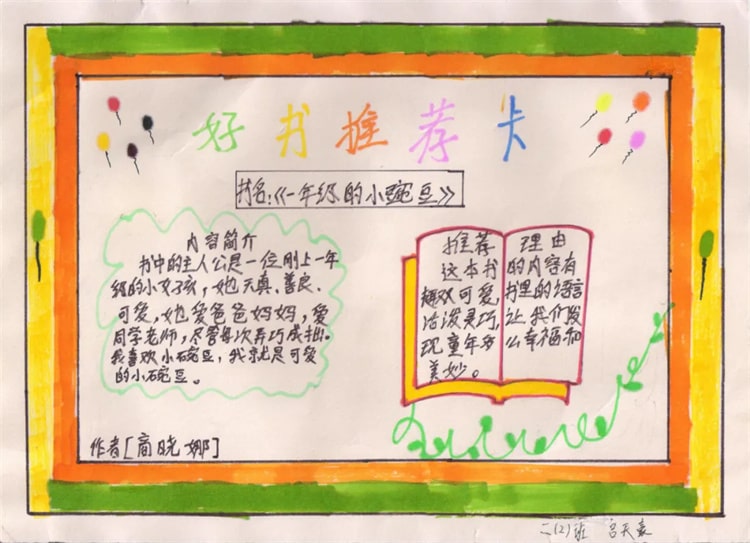 好书推荐卡
书名:《一年级的小豌豆》
内容简介
书中的主人公是一位刚上一年
级的小女孩，她天真、善良、
可爱，她爱爸爸妈妈，爱
同学老师，尽管每次弄巧成拙。
我喜欢小碗豆，我就是可爱
的小碗豆。
推荐理由
这本书的内容有
趣欢可爱，书里的语言
活泼灵巧，让我们发
现童年多么幸福和
美妙。
作者[商晓娜]
二(2)班